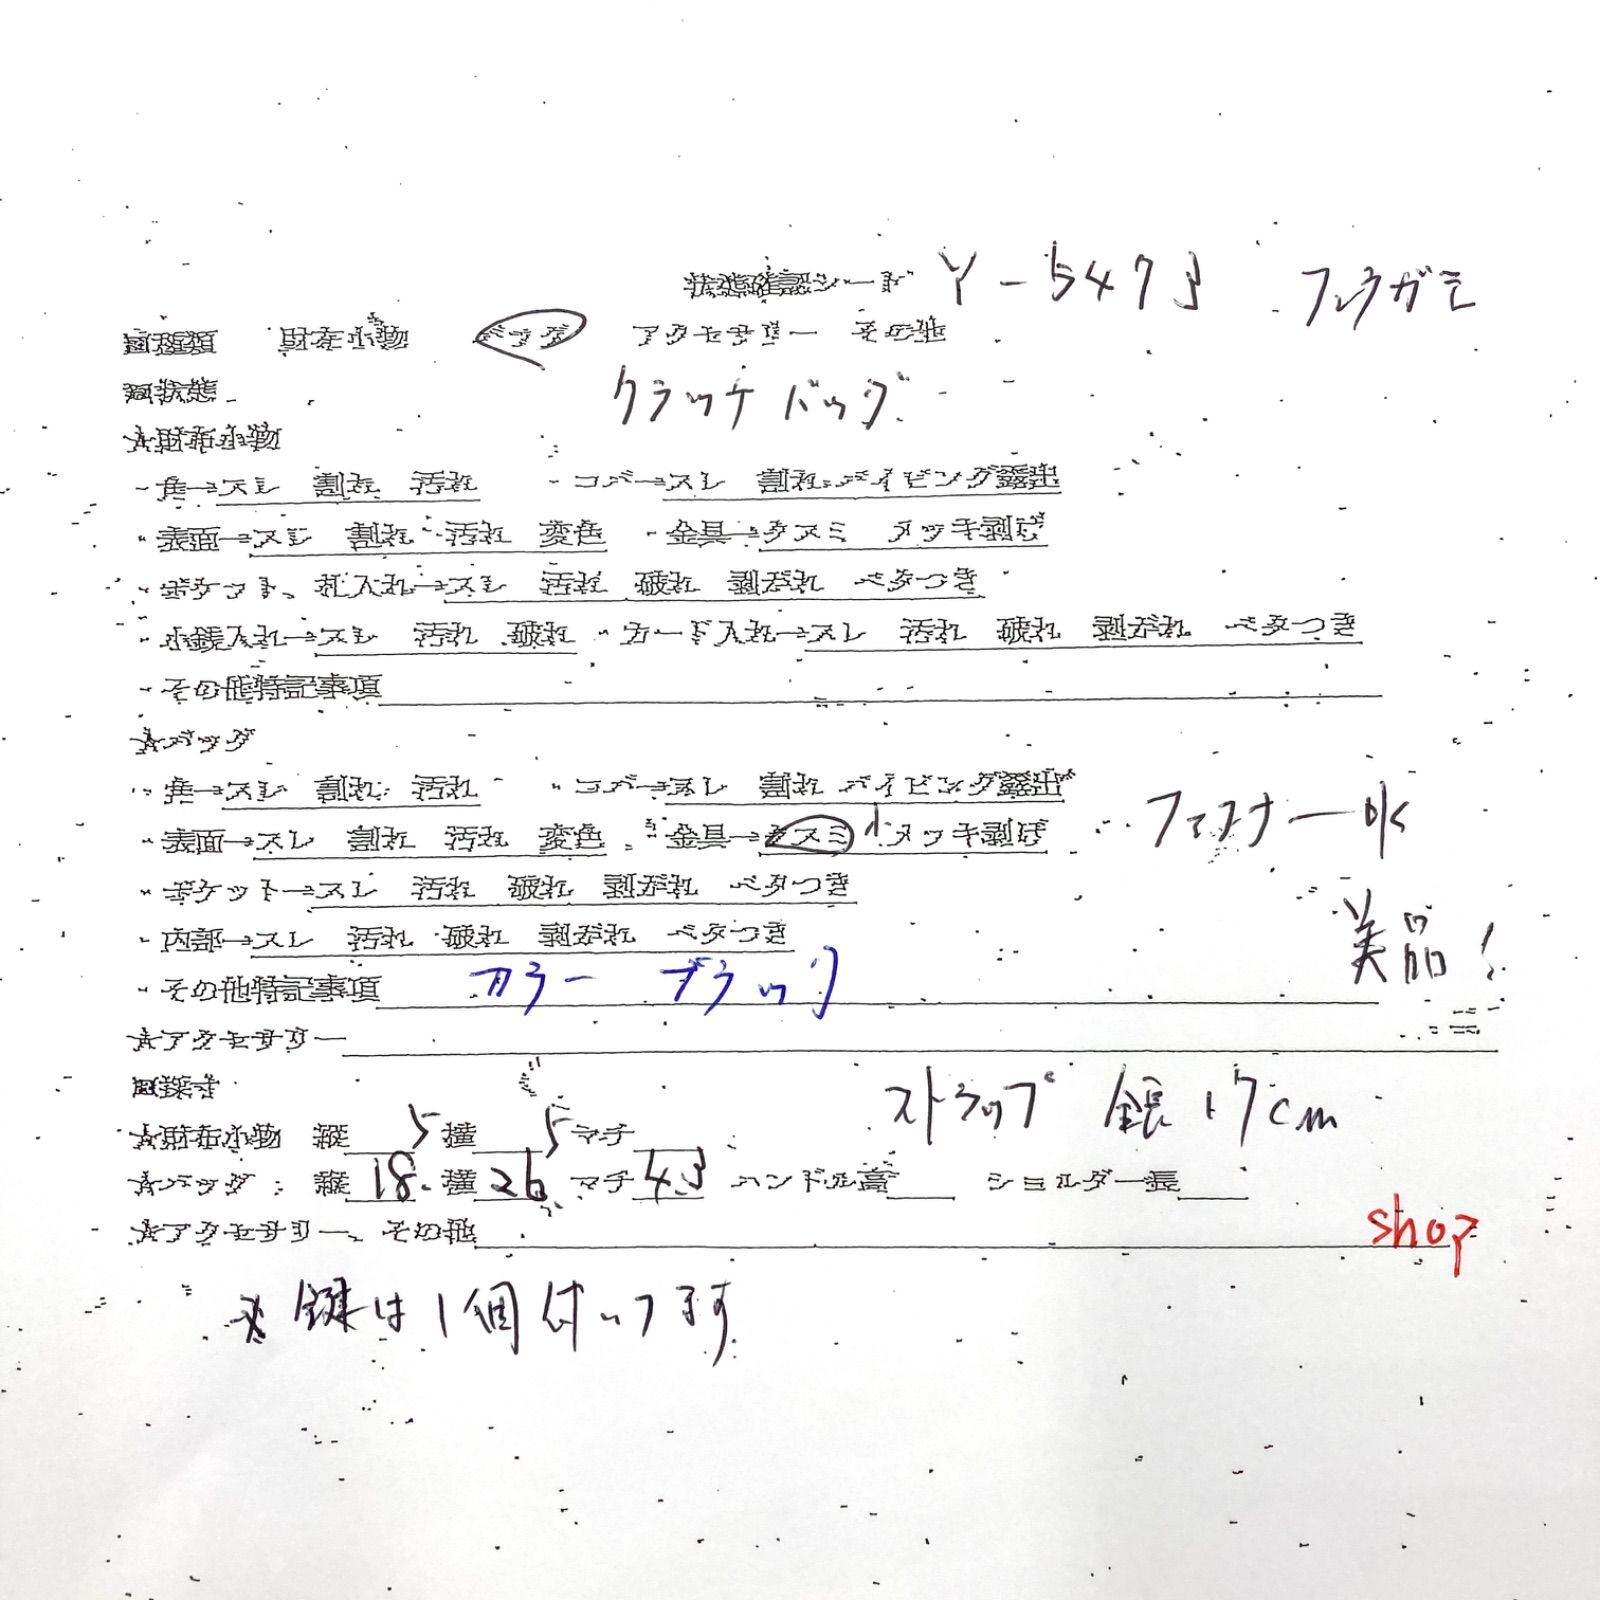 状態確認シート Y-5473 フェラガモ
□種類 財布小物 バッグ アクセサリー その他
□状態 クラッチバッグ
★財布小物
・角→スレ 割れ 汚れ ・コバ→スレ 割れ パイピング露出
・表面→スレ 割れ 汚れ 変色 ・金具→クスミ メッキ剥げ
・ポケット、札入れ→スレ 汚れ 破れ 剥がれ ベタつき
・小銭入れ→スレ 汚れ 破れ ・カード入れ→スレ 汚れ 破れ 剥がれ ベタつき
・その他特記事項
★バッグ
・角→スレ 割れ 汚れ ・コバ→スレ 割れ パイピング露出
・表面→スレ 割れ 汚れ 変色 ・金具→クスミ 小 メッキ剥げ ファスナーOK
・ポケット→スレ 汚れ 破れ 剥がれ ベタつき
・内部→スレ 汚れ 破れ 剥がれ ベタつき 美品!
・その他特記事項 カラー ブラック
★アクセサリー
□採寸 ストラップ 全長 17cm
★財布小物 縦 横 マチ
★バッグ 縦18.5 横26.5 マチ4.3 ハンドル高 ショルダー長
★アクセサリー、その他 shop
※鍵は1個付いてます